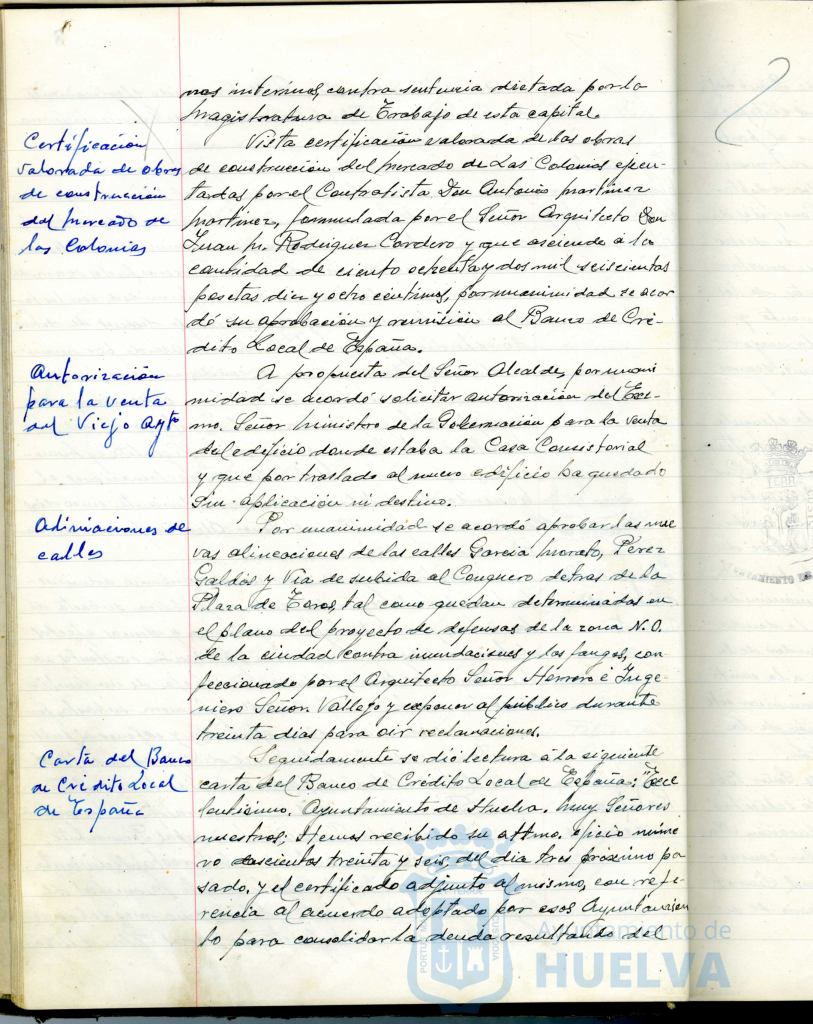 nos interinos, contra sentencia dictada por la
Magistratura de Trabajo de esta capital.
Certificación
valorada de obras
de construcción
del Mercado de
las Colonias
Vista certificación valorada de las obras
de construcción del Mercado de Las Colonias ejecu-
tadas por el Contratista Don Antonio Martinez
Martinez, formulada por el Señor Arquitecto Don
Juan M. Rodriguez Cordero y que asciende á la
cantidad de ciento ochenta y dos mil seiscientas
pesetas diez y ocho centimos, por unanimidad se acor
dó su aprobación y remisión al Banco de Cré-
dito Local de España.
Autorización
para la venta
del Viejo Aytº
A propuesta del Señor Alcalde, por unani
midad se acordó solicitar autorización del Exc-
mo. Señor Ministro de la Gobernación para la venta
del edificio donde estaba la Casa Consistorial
y que por traslado al nuevo edificio ha quedado
sin aplicación ni destino.
Aliniaciones de
calles
Por unanimidad se acordó aprobar las nue
vas alineaciones de las calles Garcia Morato, Perez
Galdós y Via de subida al Conquero detras de la
Plaza de Toros, tal como quedan determinadas en
el plano del proyecto de defensas de la zona N.O.
de la ciudad contra inundaciones y los fangos, con
feccionado por el Arquitecto Señor Herrero é Inge-
niero Señor Vallejo y exponer al público durante
treinta dias para oir reclamaciones.
Carta del Banco
de Crédito Local
de España
Seguidamente se dió lectura á la siguiente
carta del Banco de Crédito Local de España: "Exce
lentisimo. Ayuntamiento de Huelva. Muy Señores
nuestros: Hemos recibido su attmo. oficio núme
ro doscientos treinta y seis, del dia tres próximo pa
sado, y el certificado adjunto al mismo, con refe-
rencia al acuerdo adoptado por esos Ayuntamien
to para consolidar la deuda resultando del
Ayuntamiento de
HUELVA